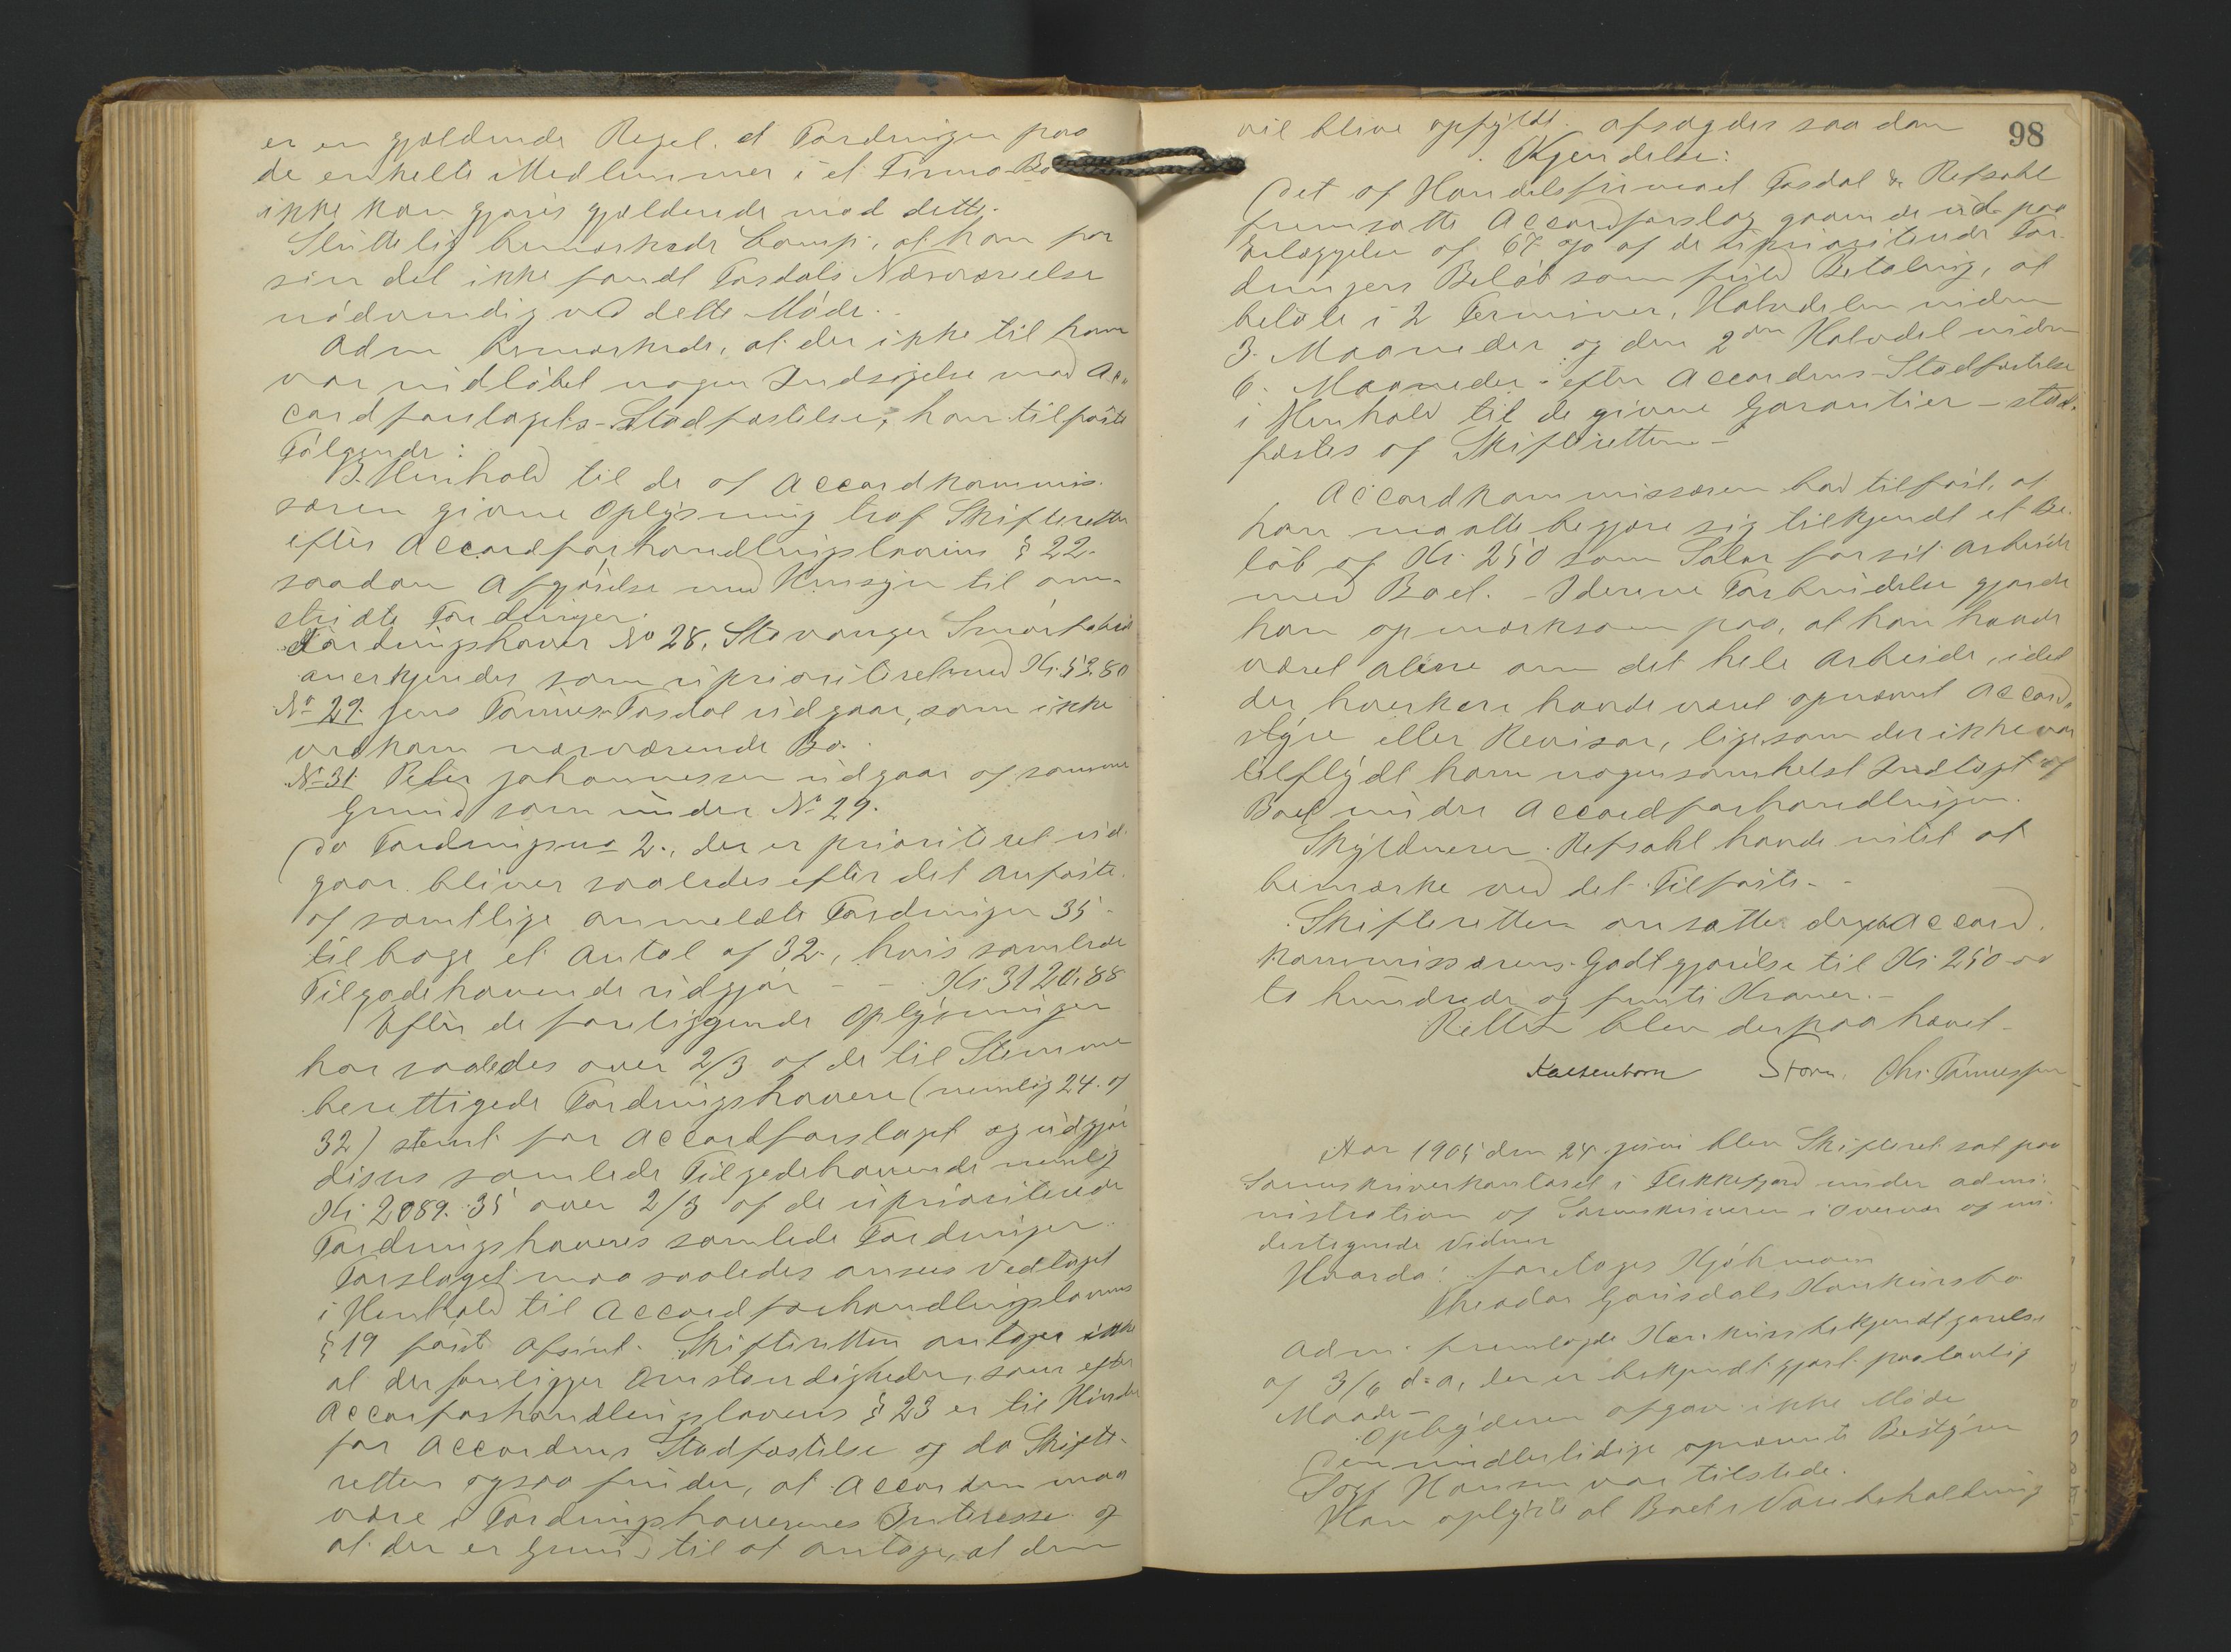 er en gjældende Regel at Fordringer paa
de enkelte Medlemmer i et Firma-Bo
ikke kan gjøres gjældende mod dette.
Sluttelig bemærkede Comp., at han for
sin del ikke fandt Fosdals Nærværelse
nødvendig ved dette Møde.
Adm bemærkede, at der ikke til ham
var indløbet nogen Indsigelse mod Ac„
cordforslagets Stadfæstelse, han tilføite
Følgende:
I Henhold til de af Accordkommis„
særen givne Oplysning traf Skifteretten
efter Accordforhandlingslovens § 22.
saadan Afgjørelse med Hensyn til om„
stridte Fordringer:
Fordringshaver No 28, Stavanger Smørfabrik
anerkjendes som uprioriteret med Kr. 53.80
No 29. Jens Tønnes Fosdal udgaar, som ikke
vedkom nærværende Bo.
No 31. Peder Johannessen udgaar af samme
Grund som under No 29.
Da Fordring no 2., der er prioriteret ud„
gaar bliver saaledes efter det Anførte
af samtlige anmeldte Fordringer 35
tilbage et Antal af 32., hvis samlede
Tilgodehavende udgjør – – Kr. 3120.88
Efter de foreliggende Oplysninger
har saaledes over 2/3 af de til Stemme
berettigede Fordringshavere (nemlig 24 af
32) stemt for Accordforslaget og udgjør
disses samlede Tilgodehavende nemlig
Kr. 2089.35 over 2/3 af de uprioriterede
Fordringshaveres samlede Fordringer.
Forslaget maa saaledes ansees vedtaget
i Henhold til Accordforhandlingslovens
§ 19 første Afsnit. Skifteretten antager ikke
at der foreligger Omstændigheder, som efter
Accorforhandlingslovens § 23 er til Hinder
for Accordens Stadfæstelse og da Skifte-
retten ogsaa finder, at Accorden maa
være i Fordringshavernes Interesse og
at der er Grund til at antage, at den
98
vil blive opfyldt. afsagdes saadan
Kjendelse:
Det af Handelsfirmaet Fosdal & Refsahl
fremsatte Accordforslag gaaende ud paa
Erlæggelse af 67 % af de uprioriterede For„
dringers Beløb som fuld Betaling, at
betale i 2 Terminer, Halvdelen inden
3. Maaneder og den 2den Halvdel inden
6. Maaneder efter Accordens Stadfæstelse
i Henhold til de givne Garantier – stad„
fæstes af Skifteretten –
Accordkommissæren bad tilført, at
han maatte begjære sig tilkjendt et Be„
løb af Kr. 250 som Salær for sit Arbeide
med Boet. – I denne Forbindelse gjorde
han opmærksom paa, at han havde
været alene om det hele Arbeide, idet
der hverken havde været opnævnt Accord„
styre eller Revisor, ligesom der ikke var
tilflydt ham nogensomhelst Indtægt af
Boet under Accordforhandlingen.
Skyldneren Refsahl havde intet at
bemærke ved det Tilførte. –
Skifteretten ansatte derpaa Accord„
kommissærens Godtgjørelse til Kr. 250 –
to hundrede og femti Kroner. –
Retten blev derpaa hævet –
Kaltenborn Storm. Chr. Tønnessen
Aar 1905 den 24 juni blev Skifteret sat paa
Sorenskriverkontoret i Flekkefjord under admi„
nistration af Sorenskriveren i Overvær af un„
dertegnede Vidner
Hvorda: foretoges Kjøbmand
Theodor Gausdals Konkursbo
Adm. fremlagde Konkursbekjendtgjørelse
af 3/6 d. a, der er bekjendtgjort paa lovlig
Maade –
Opbyderen afgav ikke Møde
Den midlertidige opnævnte Bestyrer
Hansen var tilstede.
Han oplyste at Boets Varebeholdning